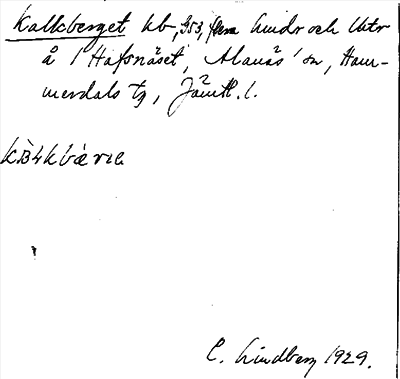 Kalkberget hb, 953, fem hindr och Utr
å i Hafsnäset, Alanäs' sn, Ham-
merdals tg, Jämtl. l.
C. Lindberg 1929.